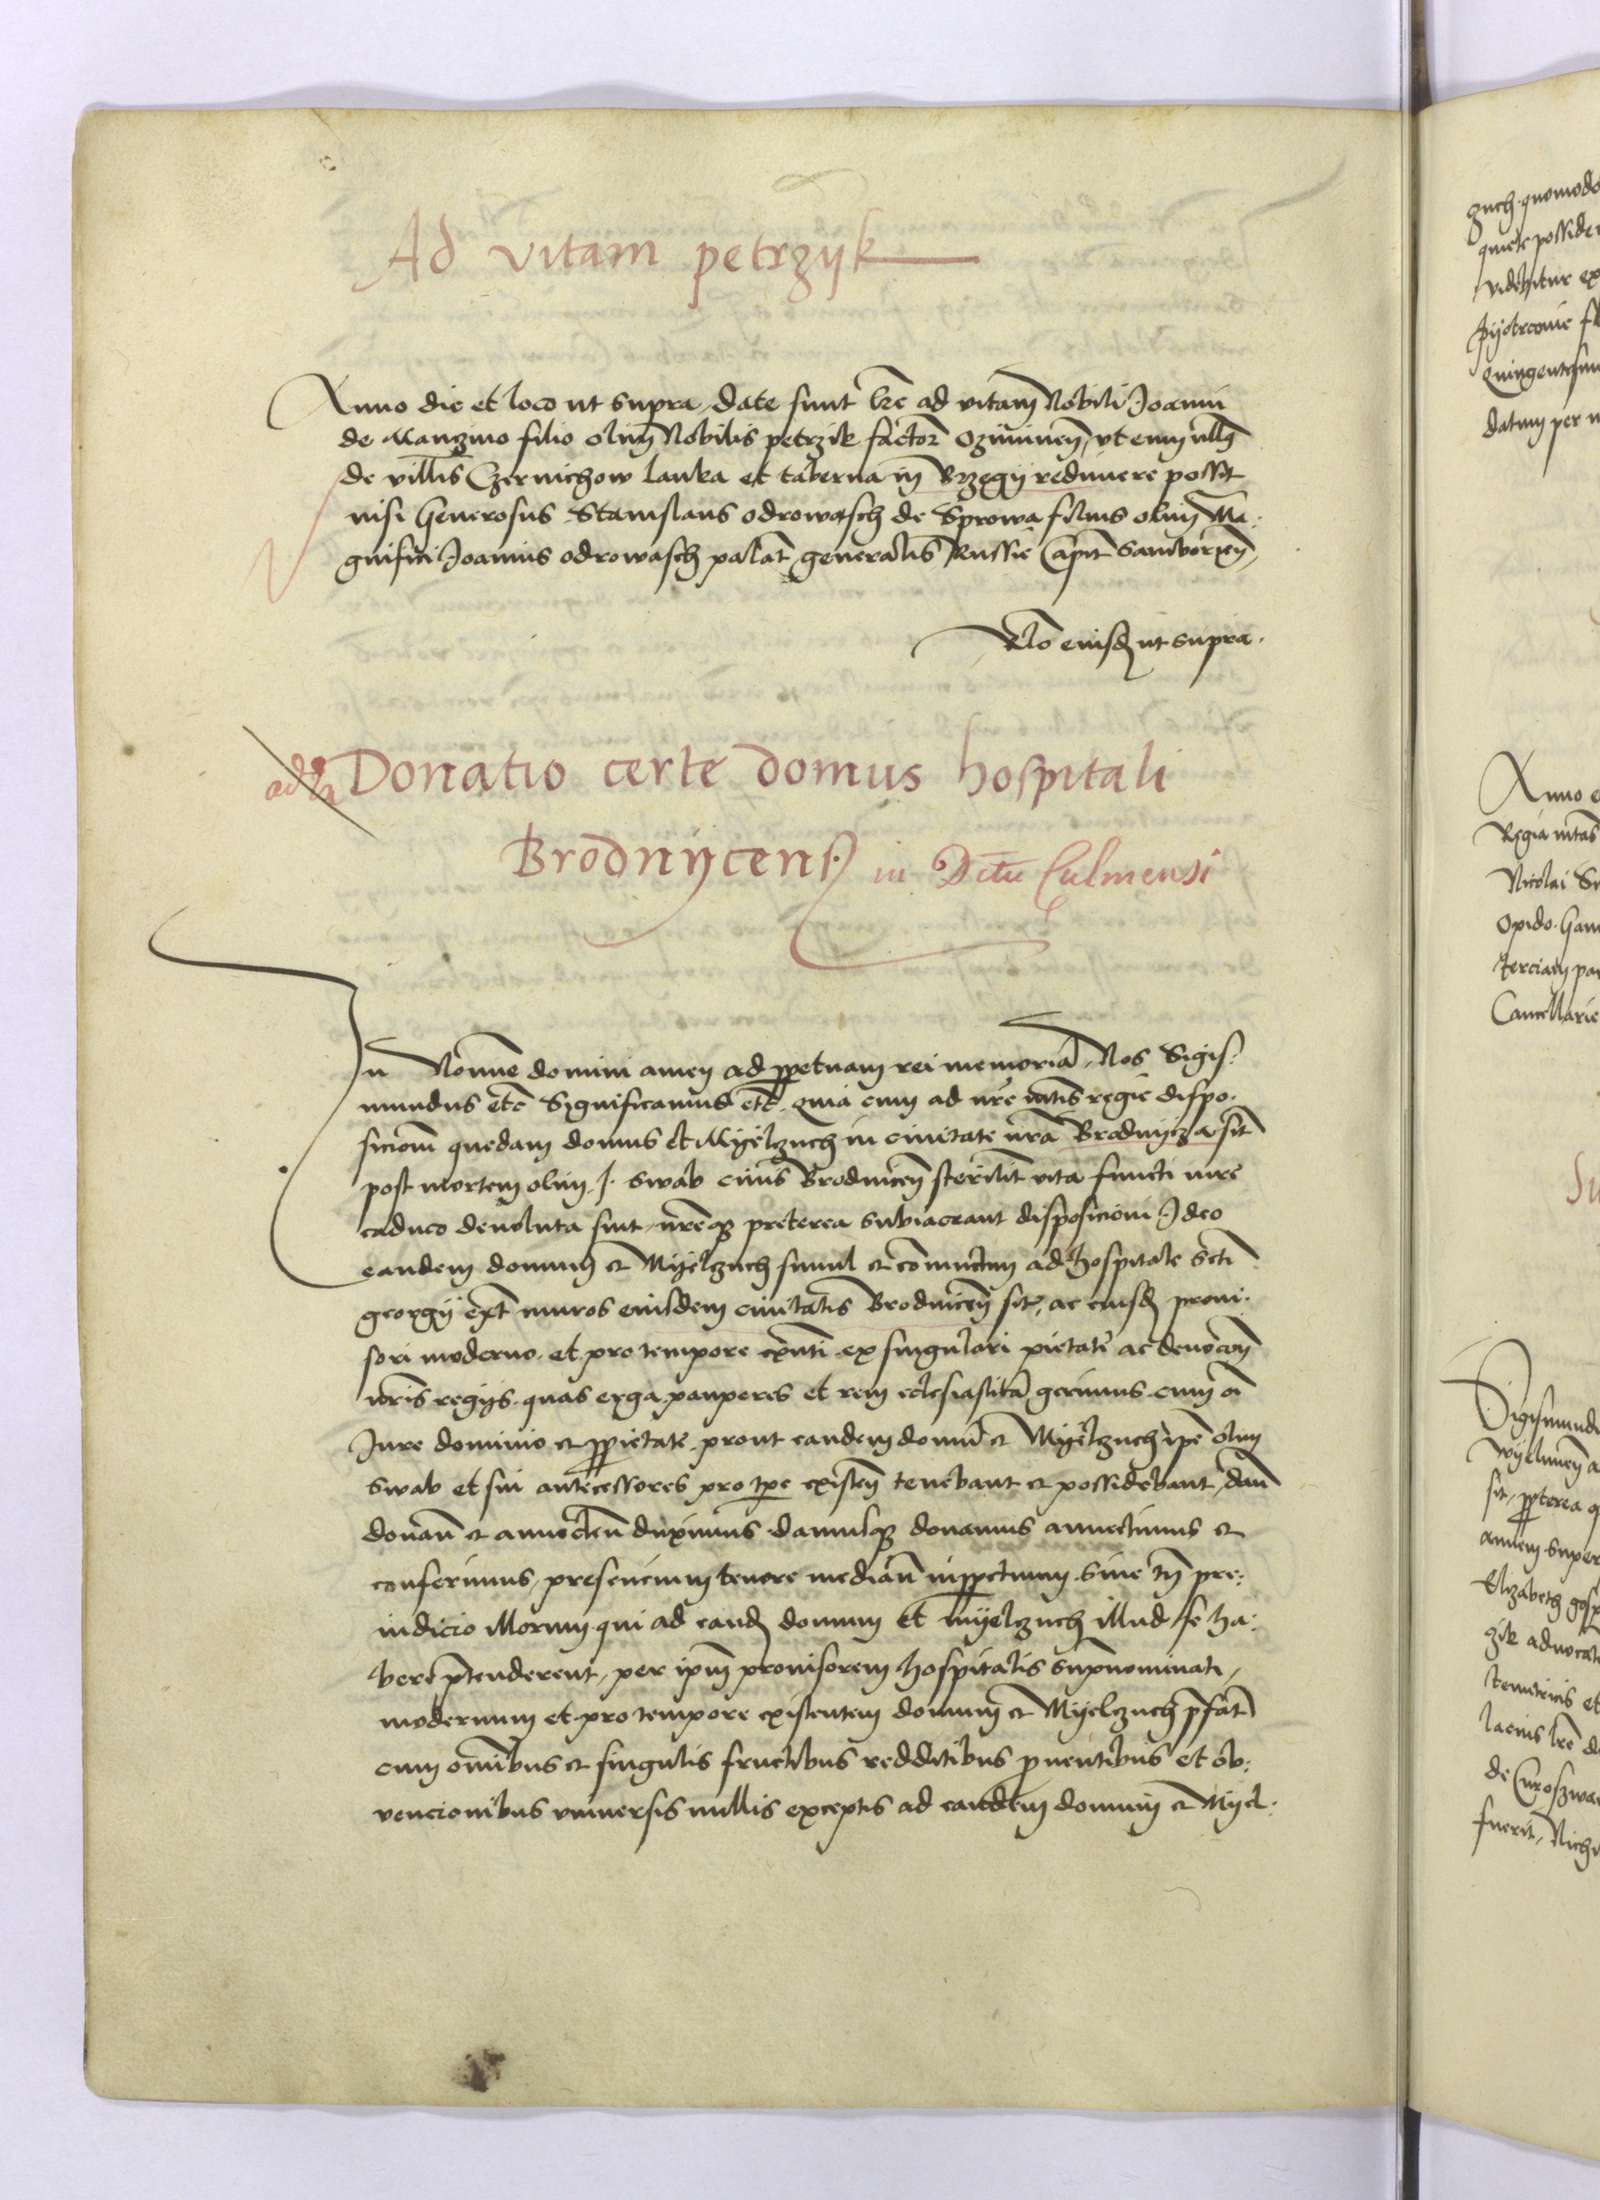 Ad vitam petrzyk
Anno die et loco ut supra, date sunt lre ad vitam Nobili Joanni
de Manzino filio olim Nobilis petrzik factor oziminen, ut eum ullus
de villis Czernichow lanka et taberna in Brzegy redimere possit
nisi Generosus Stanislaus odrowasch de Sprowa filius olim Ma:
gnifici Joannis odrowasch palat generalis Russie Capit Samborien,
Rlo eiusd ut supra.
Donatio certe domus hospitali
Brodnycens in Dctu Culmensi
In Nomine domini amen ad ppetuam rei memoria, Nos Sigis:
mundus etc Significamus etc. quia cum ad nre matis regie dispo:
sicioni quedam domus et Myelzuch in civitate nra Brodnycza sit
post mortem olim J. swab civis Brodnicen sterilit vita functi iure
caduco devoluta sint, nreq preterea subiaceant disposicioni Ideo
eandem domum et Myelzuch simul et coniunctim ad hospitale scti
georgij ext muros eiusdem civitatis Brodnicen site, ac eiusd provi:
sori moderno et pro tempore exnti ex singulari pietate ac devocon
nris regijs quas erga pauperes et rem eclesiastica gerimus cum oi
Jure dominio et ppietate prout eandem domu et Myelzuch ipe olim
swab et sui antecessores pro tpe existen tenebant et possidebant, dan
donan et annecten duximus damusq donamus annectimus et
conferimus, presencium tenore median inppetuum sine tn pre:
iudicio illorum qui ad eand domum et myelzuch illud se ha:
bere ptenderent, per ipm provisorem hospitalis supnominati,
modernum et pro tempore existentem domum et Myelzuch pfat
cum omibus et singulis fructibus redditibus pventibus et ob:
vencionibus universis nullis exceptis ad eandem domum et Myel:
zuch quomodo
quiete posside
videbitur ex
pyotrcovie
Quingentesim
datum per
Anno e
Regia mtas
Nicolai
opido
terciam pa
Cancellarie
Sigismund
sit, ppterea q
autem super
Elizabeth
zik advocat
tenutricis et
de Curoszwa
fuerit, Nichi